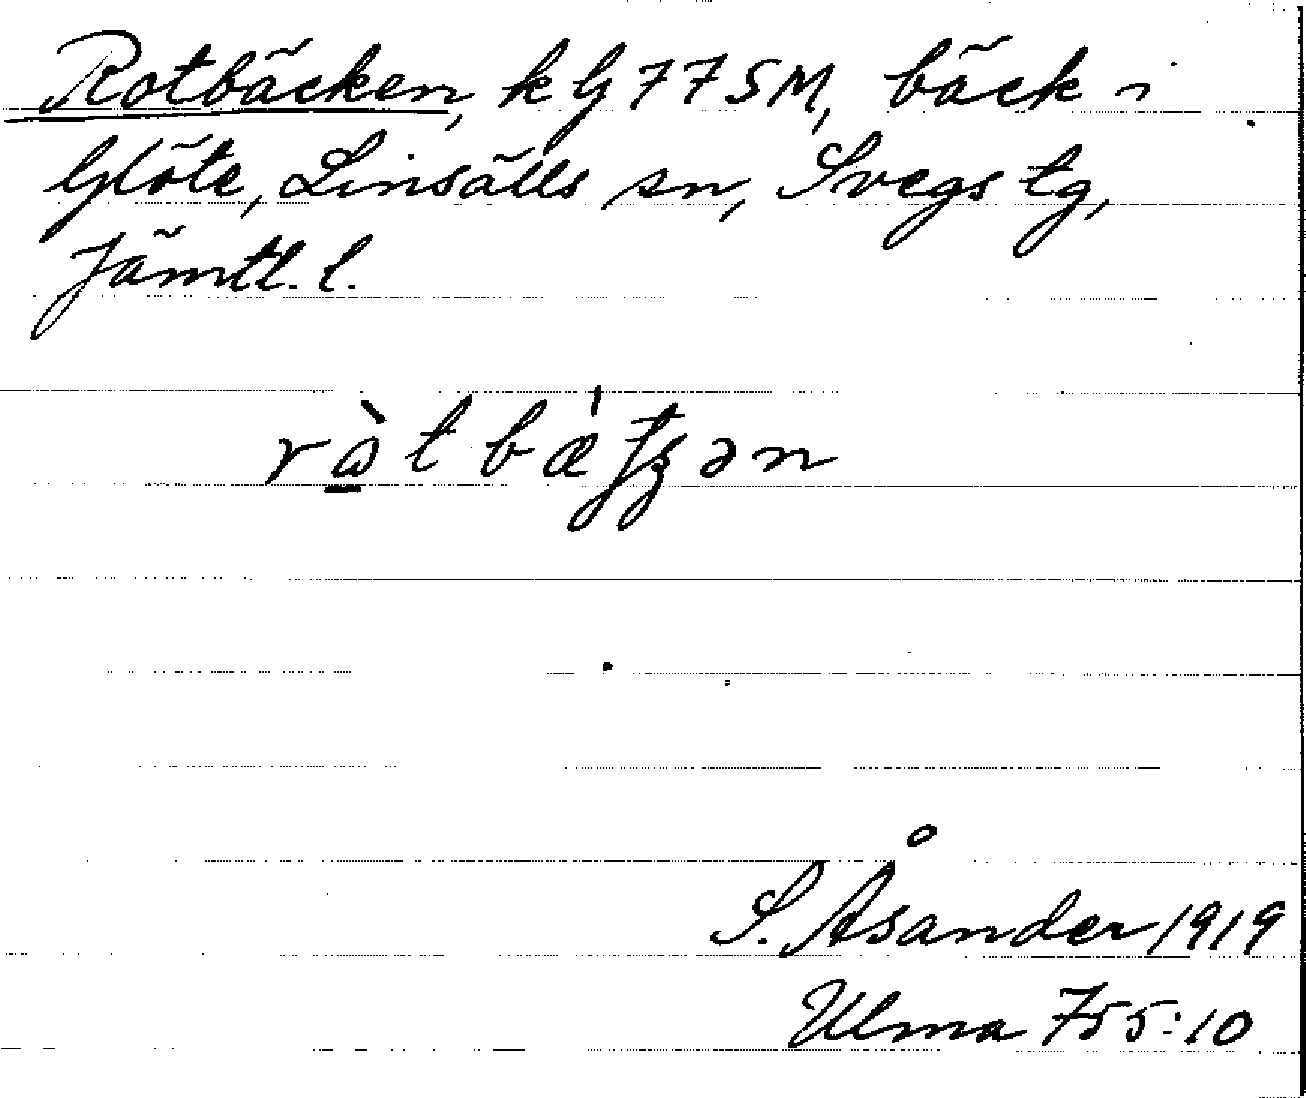 Rotbäcken, k G 77 SM, bäck i
Glöte, Linsälls sn, Svegs tg,
Jämtl. l.
S. Åsander 1919
Ulma 755:10